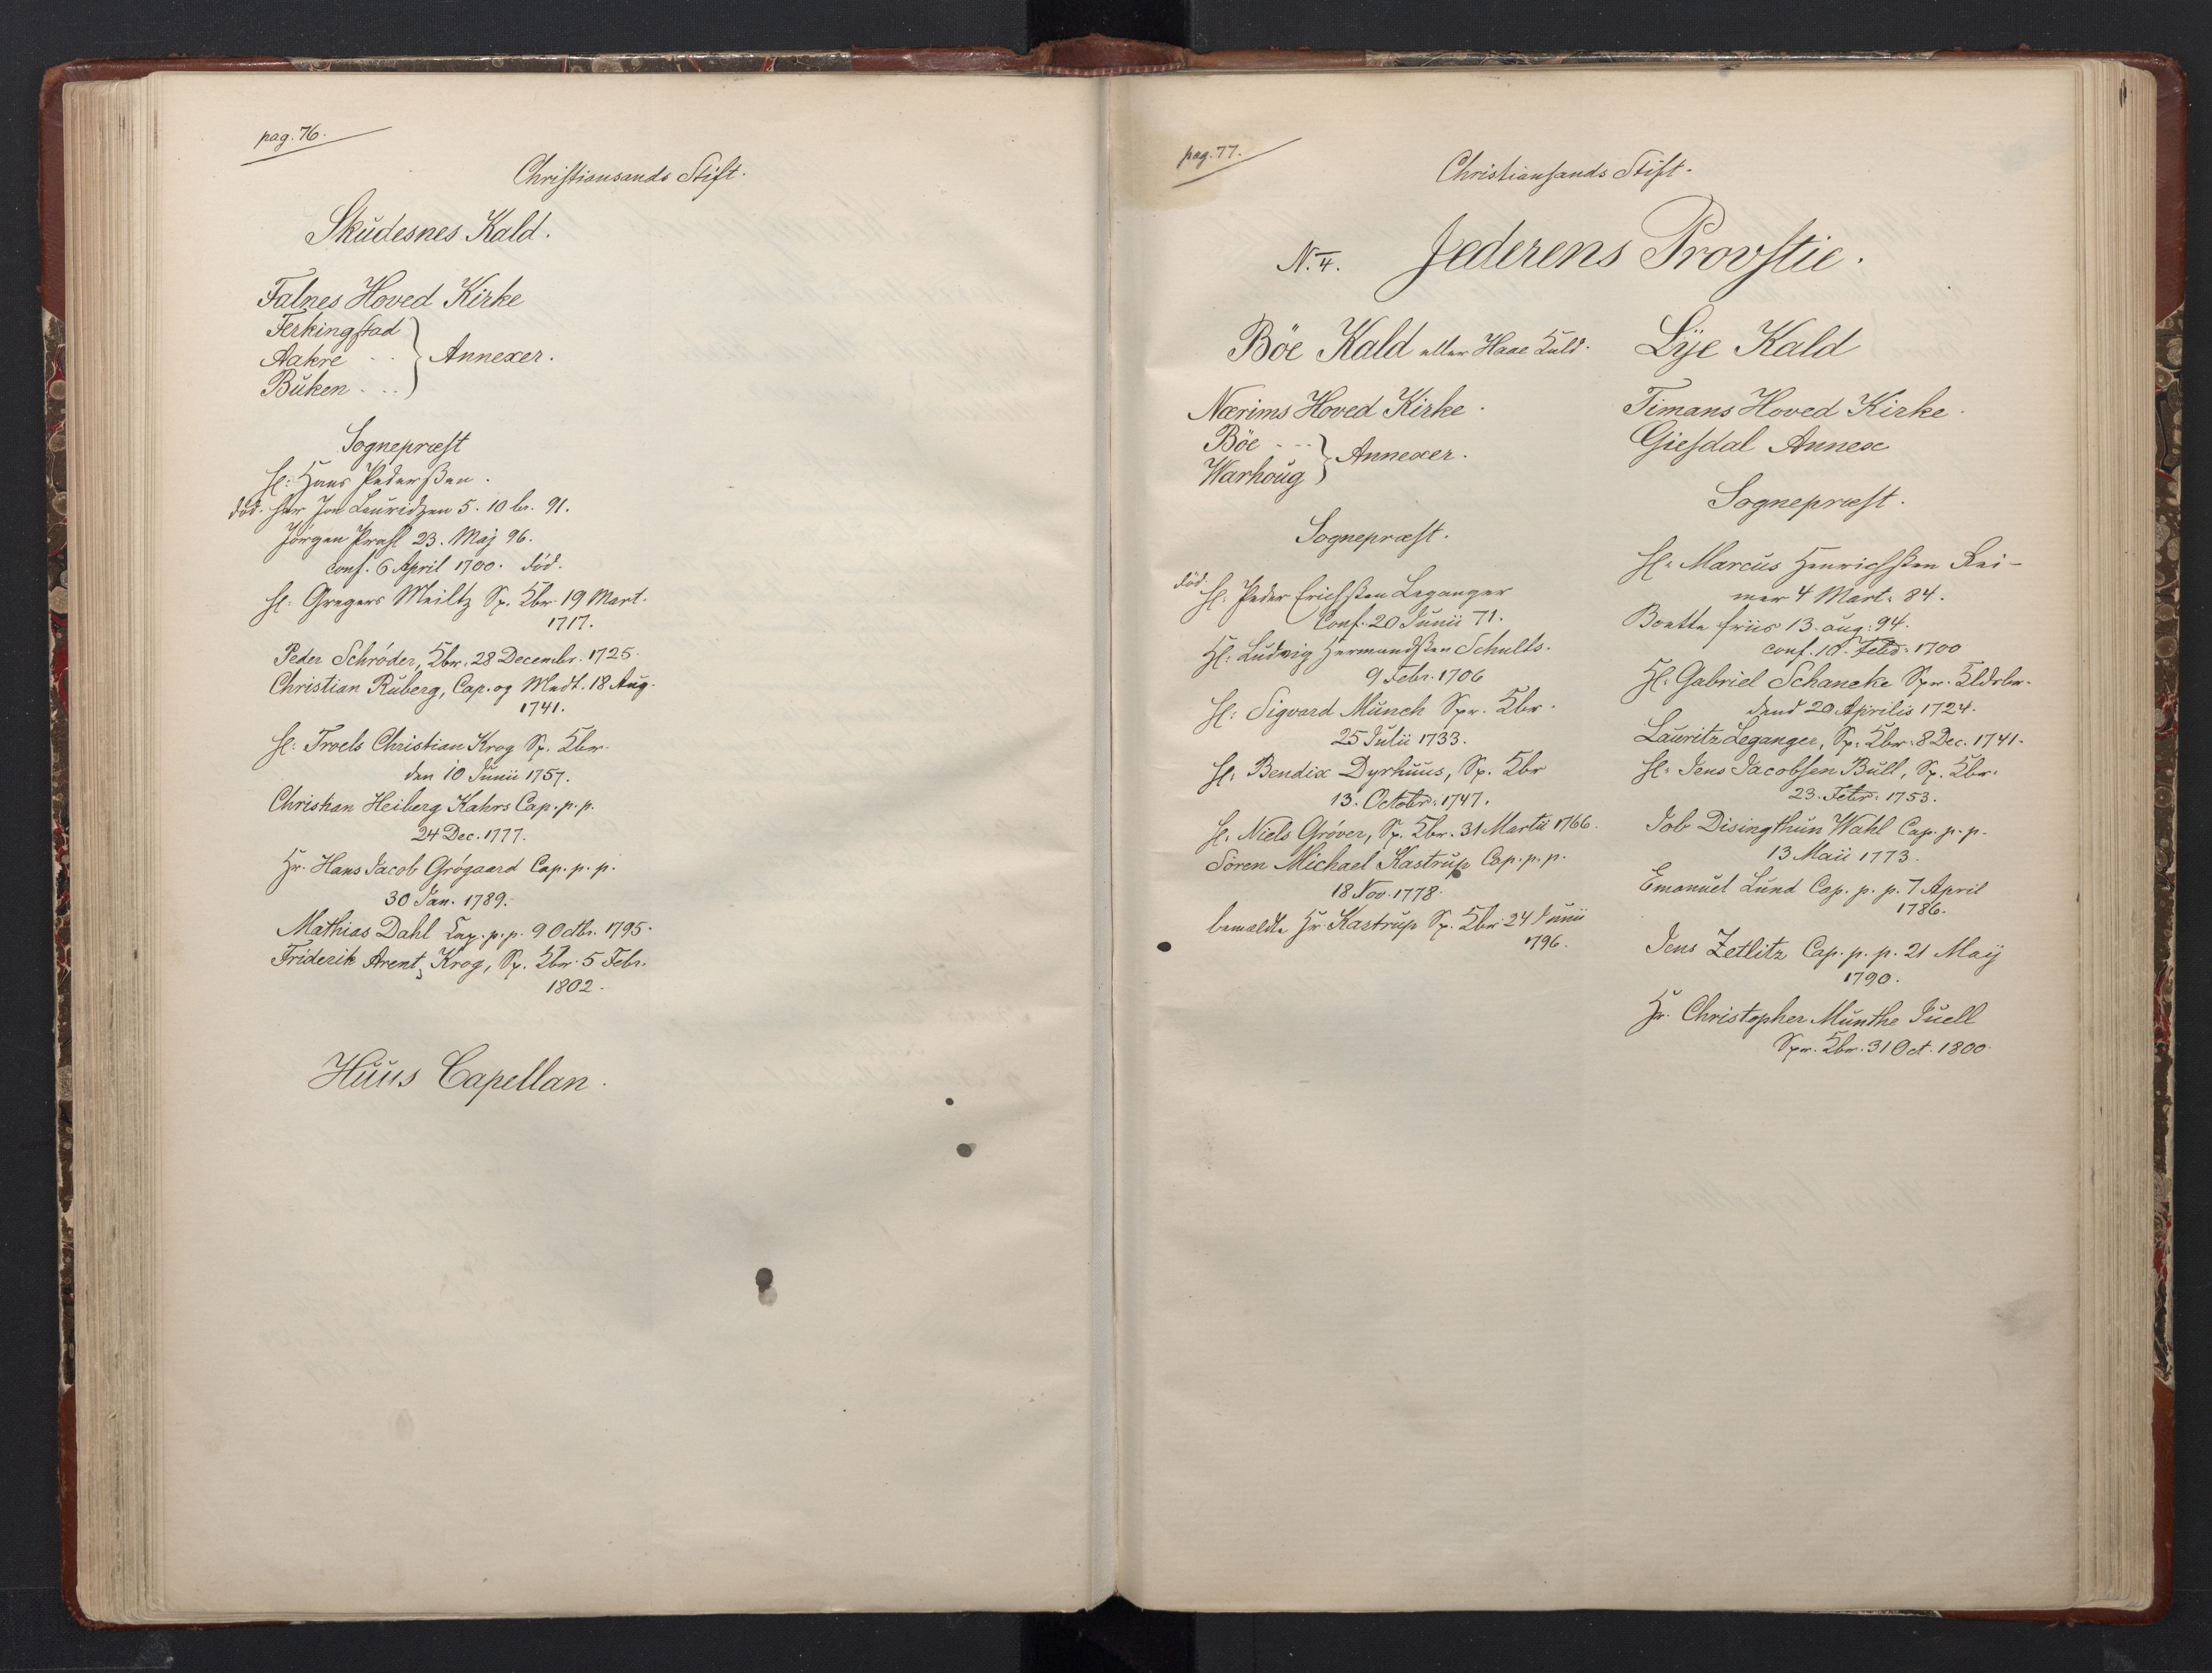 pag. 76.
Christiansands Stift.
Skudesnes Kald.
Falnes Hoved Kirke
Ferkingstad
Aakre - - } Annexer.
Buken - - -
Sognepræst
H: Hans Pederßen.
død. Her Jon Lauridzen 5. 10br. 91.
Jørgen Prahl 23. Maj 96.
conf. 6 April 1700. død.
H: Gregers Meiltz Sp. Kbr. 19 Mart.
1717.
Peder Schrøder, Kbr. 28 Decembr. 1725.
Christian Ruberg, Cap. og Medt. 18 Aug.
1741.
H: Troels Christian Krog Sp. Kbr.
den 10 Junii 1757.
Christian Heiberg Kahrs Cap. p. p.
24 Dec. 1777.
Hr. Hans Jacob Grøgaard Cap. p. p.
30 Jan. 1789.
Mathias Dahl Cap. p. p. 9 Octbr. 1795.
Friderik Arent Krog, Sp. Kbr. 5 Febr.
1802.
Huus Capellan.
pag. 77.
Christiansands Stift.
N. 4. Jederens Provstie.
Böe Kald eller Haae Kald.
Nærims Hoved Kirke.
Böe - - - } Annexer.
Warhoug
Sognepræst.
død.
H: Peder Erichßen Leganger
Conf. 20 Junii 71.
H: Ludvig Hermandßen Schults.
9 Febr. 1706
H: Sigvard Munch Spr. Kbr.
25 Julii 1733.
H: Bendix Dyrhuus, Sp. Kbr
13. Octobr. 1747.
H: Niels Grøver, Sp. Kbr. 31 Martii 1766.
Søren Michael Kastrup Cap. p. p.
18 Nov. 1778.
bemeldte Hr. Kastrup Sp. Kbr 24 Junii
1796.
Lÿe Kald
Timans Hoved Kirke.
Giesdal Annex
Sognepræst.
H: Marcus Henrichßen Rei-
mer 4 Mart: 84.
Boette Friis 13. aug: 94.
conf. 10. Febr: 1700
H: Gabriel Schancke Spr. Kldsbr.
dend 20 Aprilis 1724.
Lauritz Leganger, Sp. Kbr. 8 Dec. 1741.
H: Jens Jacobsen Bull, Sp. Kbr.
23. Febr: 1753.
Job Disingthun Wahl Cap. p. p.
13 Maii 1773.
Emanuel Lund Cap. p. p. 7 April
1786.
Jens Zetlitz Cap. p. p. 21 Maÿ
1790.
Hr. Christopher Munthe Juell
Spr. Kbr. 31 Oct. 1800.